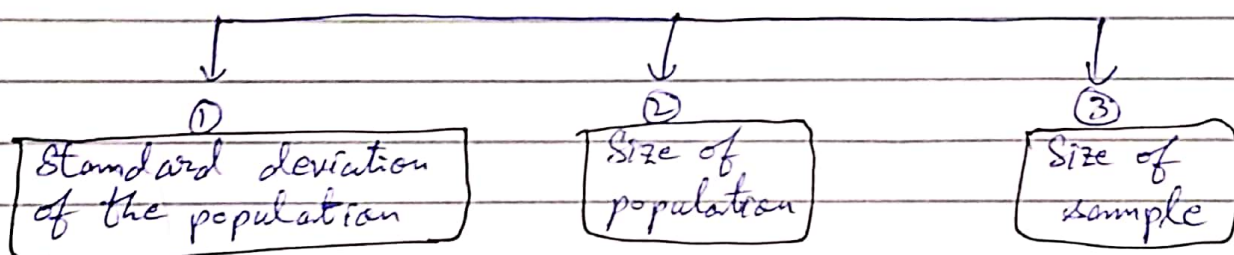 ①
Standard deviation
of the population
②
Size of
population
③
Size of
sample